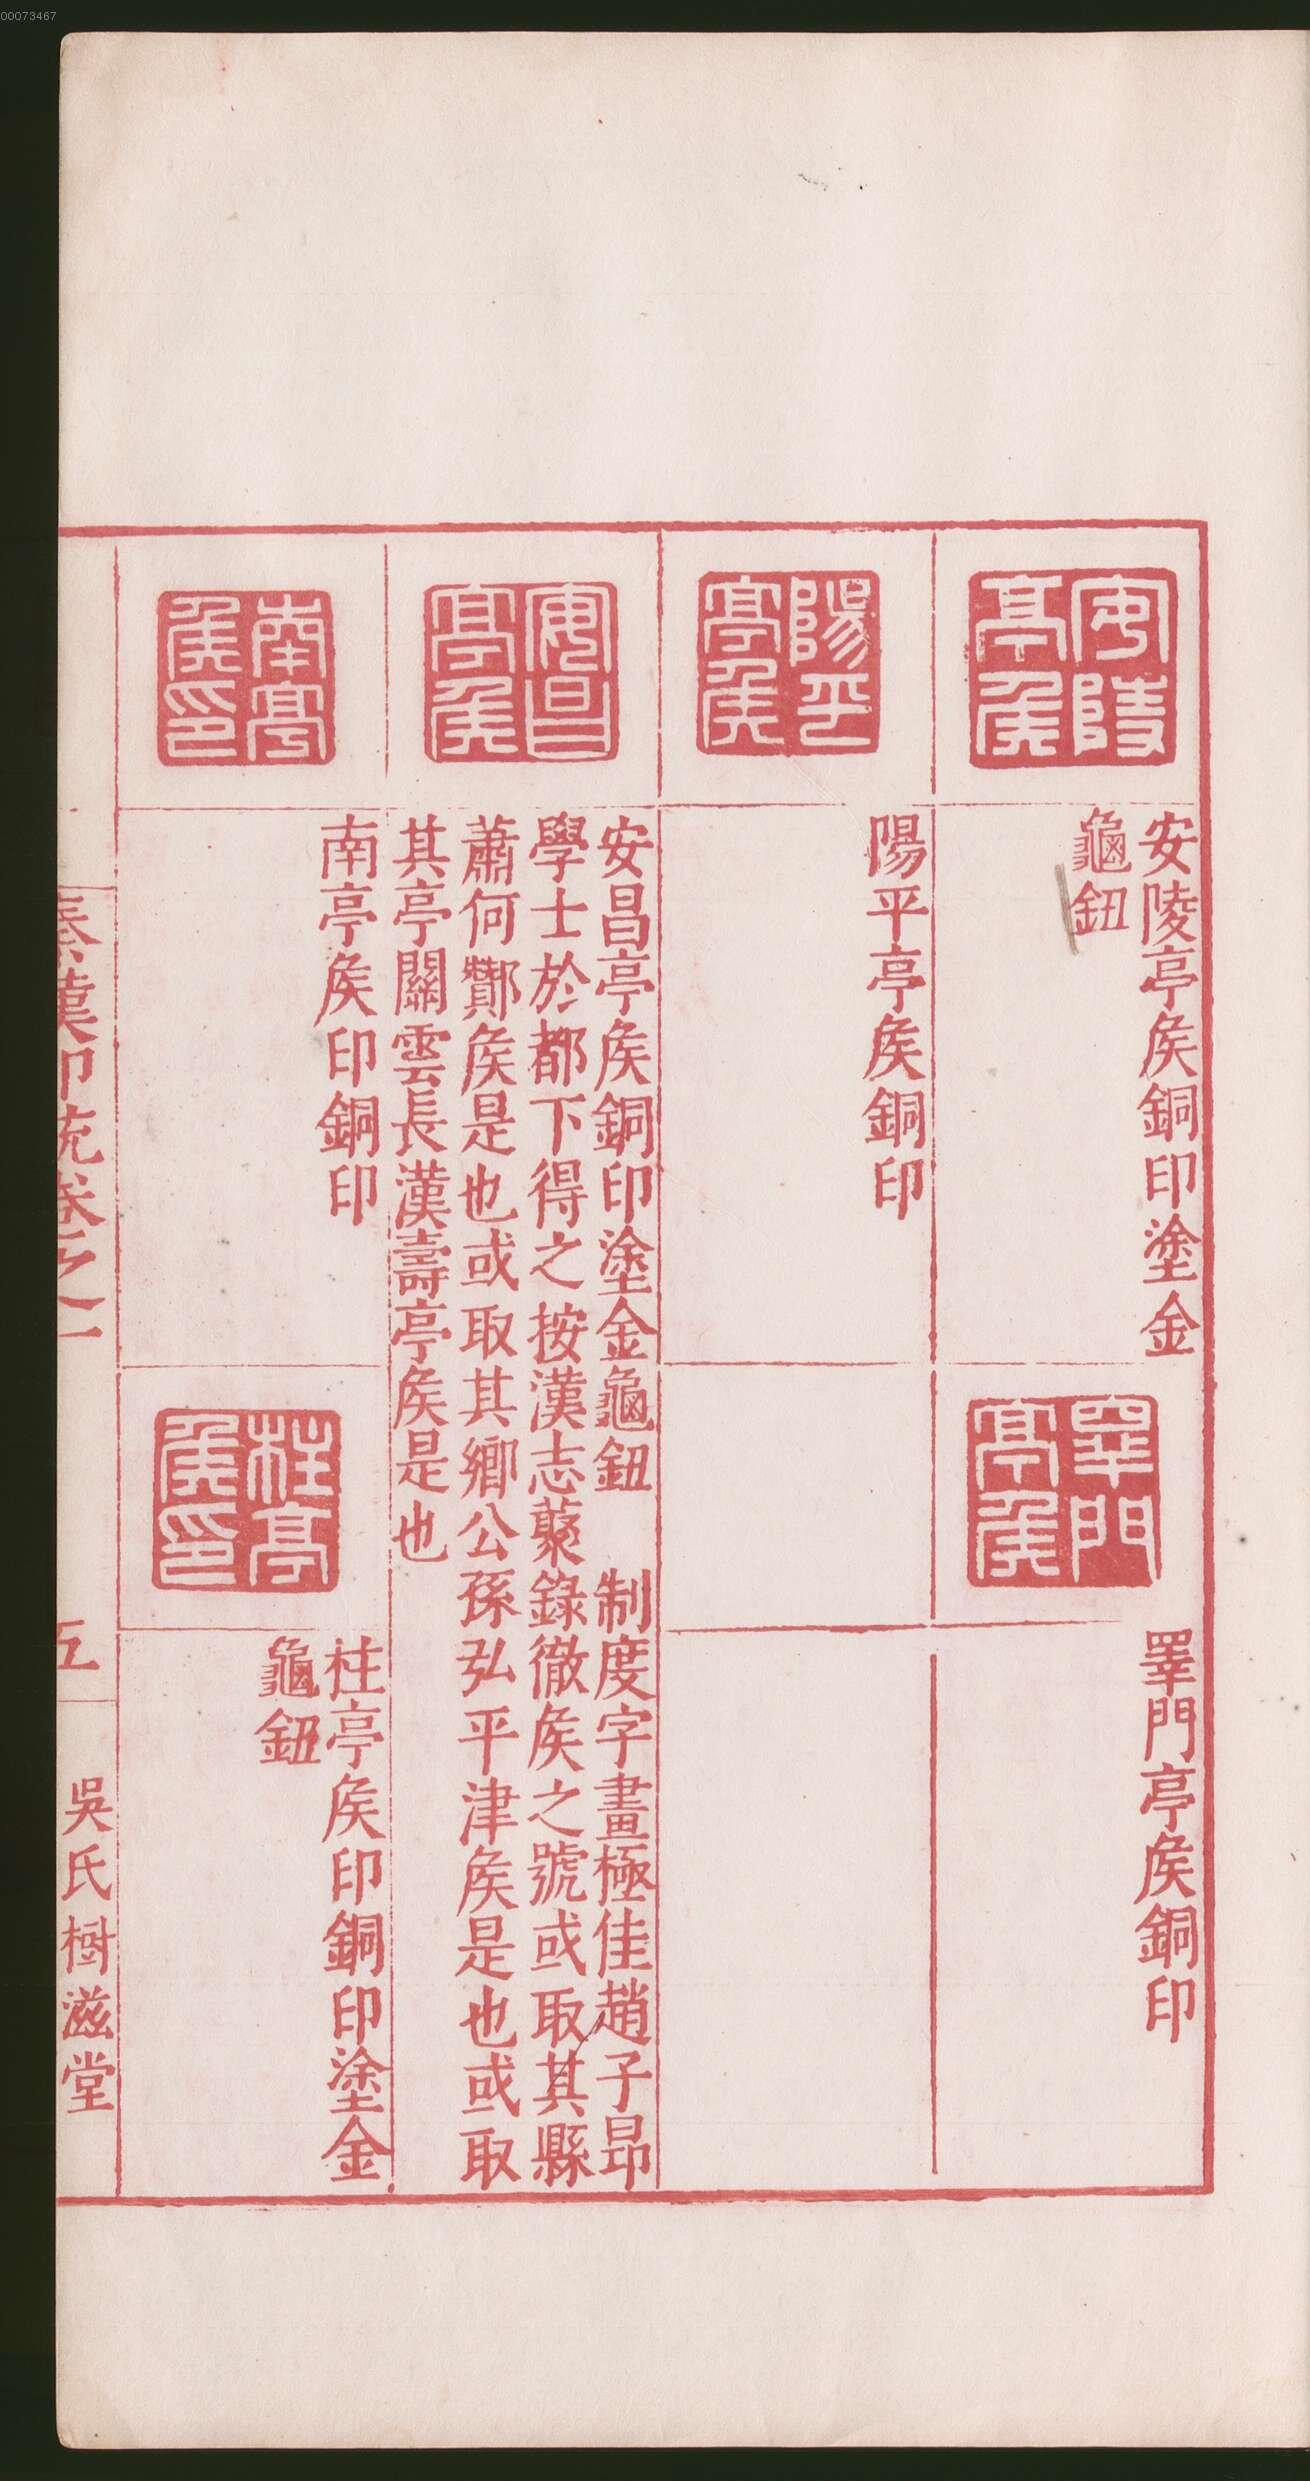 00073467
安陵
亭矦
安陵亭矦銅印塗金
龜鈕
睪門
亭矦
睪門亭矦銅印
陽平
亭矦
陽平亭矦銅印
安昌
亭矦
安昌亭矦銅印塗金龜鈕　制度字畫極佳趙子昂
學士於都下得之按漢志蔡錄徹矦之號或取其縣
蕭何酇矦是也或取其鄉公孫弘平津矦是也或取
其亭關雲長漢壽亭矦是也
南亭
矦印
南亭矦印銅印
柱亭
矦印
柱亭矦印銅印塗金
龜鈕
秦漢印統卷之一
五
吳氏樹滋堂